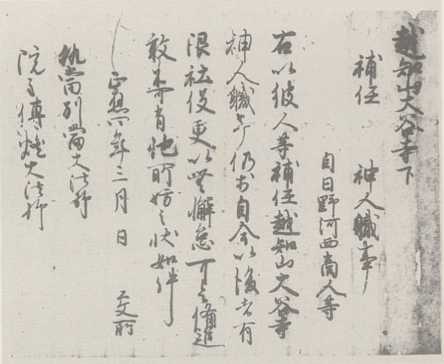 越知山大谷寺下
補任　神人職事
自日野河西商人等
右以彼人等補任越知山大谷寺
神人職事仍於自今以後者有
限社役更以無懈怠可令備進
敢不可他所妨之状如件
正応　年三月　日
執当別当大法師
院主傳燈大法師